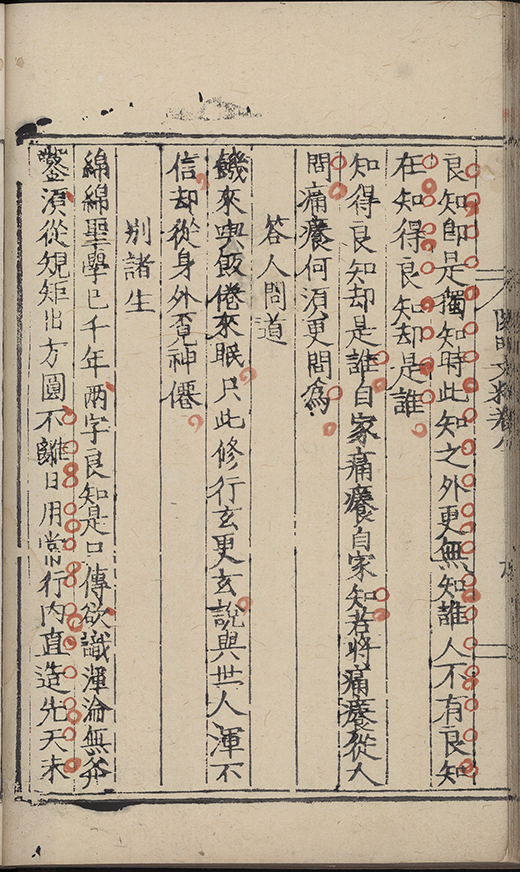 良知即是獨知時此知之外更無知誰人不有良知
在知得良知却是誰
知得良知却是誰自家痛癢自家知若將痛癢從人
問痛癢何須更問爲
答人問道
饑來喫飯倦來眠只此修行玄更玄說與世人渾不
信却從身外覓神僊
別諸生
綿綿聖學已千年兩字良知是口傳欲識渾淪無斧
鑿須從規矩出方圓不離日用常行內直造先天未